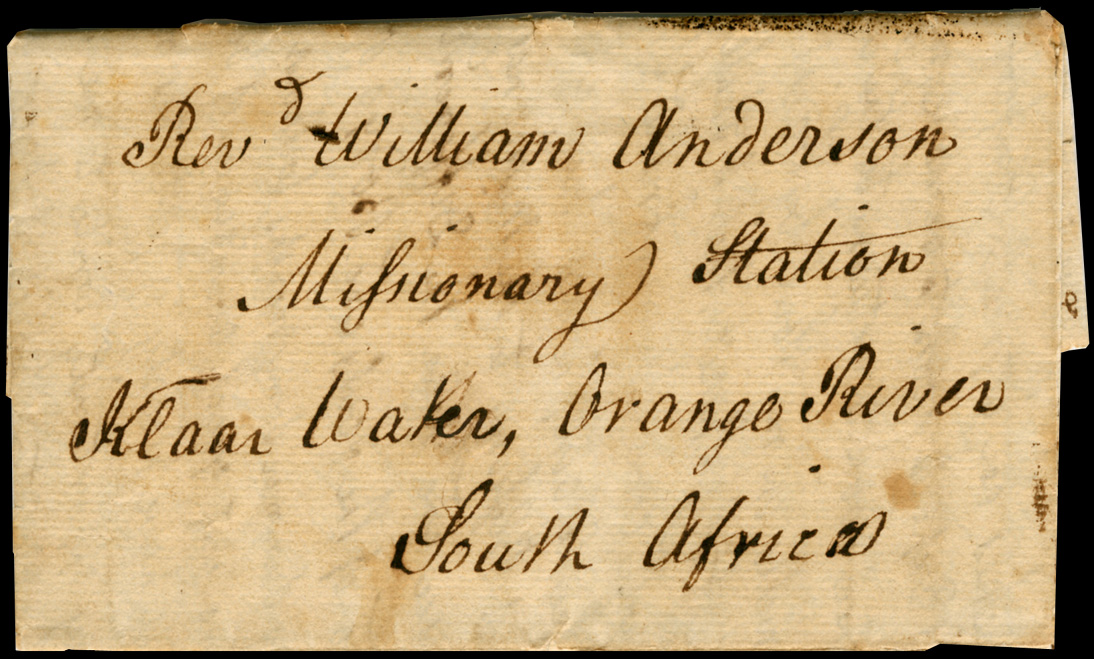 Revd William Anderson
Missionary Station
Klaar Water, Orange River
South Africa